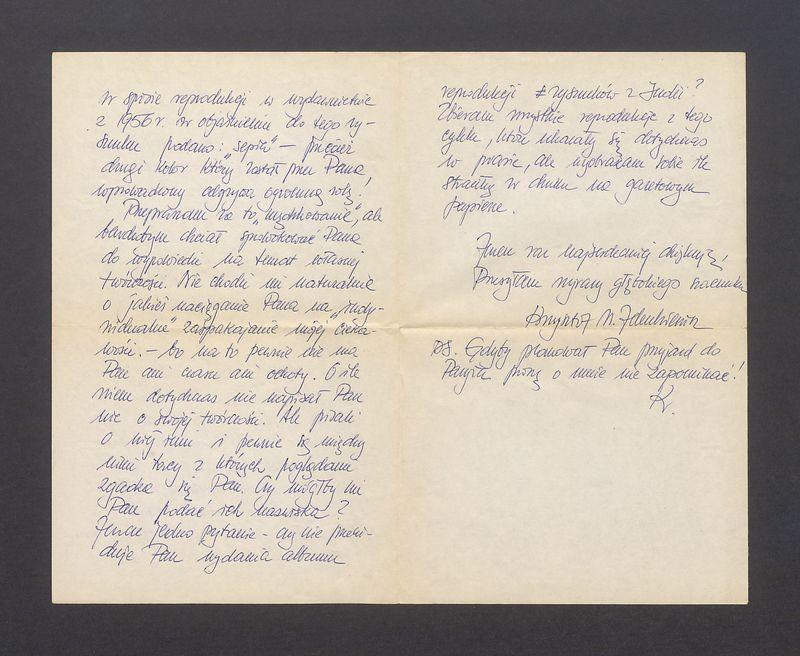 w spisie reprodukcji w wydawnictwie
z 1956 r. w objaśnieniu do tego ry-
sunku podano: "sepia" — przecież
drugi kolor który został przez Pana
wprowadzony odgrywa ogromną rolę!
Przepraszam za to "wydziwianie", ale
bardzobym chciał sprowokować Pana
do wypowiedzi na temat własnej
twórczości. Nie chodzi mi naturalnie
o jakieś naciąganie Pana na "indy-
widualne" zaspakajanie mojej cieka-
wości. — bo na to pewnie nie ma
Pan ani czasu ani ochoty. O ile
wiem dotychczas nie napisał Pan
nic o swojej twórczości. Ale pisali
o niej inni i pewnie są między
nimi tacy z których poglądami
zgadza się Pan. Czy mógłby mi
Pan podać ich nazwiska?
Jeszcze jedno pytanie - czy nie przewi-
duje Pan wydania albumu
reprodukcji rysunków z Indii?
Zbieram wszystkie reprodukcje z tego
cyklu, które ukazały się dotychczas
w prasie, ale wyobrażam sobie ile
straciły w druku na gazetowym
papierze.
Jeszcze raz najserdeczniej dziękuję!
Przesyłam wyrazy głębokiego szacunku
Krzysztof M.
PS. Gdyby planował Pan przyjazd do
Paryża proszę o mnie nie zapominać!
Kr.